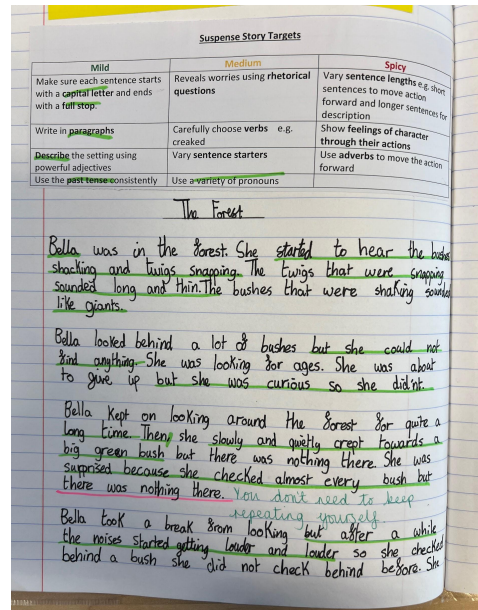 Suspense Story Targets
Mild
Medium
Spicy
Make sure each sentence starts with a capital letter and ends with a full stop.
Reveals worries using rhetorical questions
Vary sentence lengths e.g. short sentences to move action forward and longer sentences for description
Write in paragraphs
Carefully choose verbs e.g. creaked
Show feelings of character through their actions
Describe the setting using powerful adjectives
Vary sentence starters
Use adverbs to move the action forward
Use the past tense consistently
Use a variety of pronouns
The Forest
Bella was in the forest. She started to hear the bushes
shacking and twigs snapping. The twigs that were snapping
sounded long and thin. The bushes that were shaking sounded
like giants.
Bella looked behind a lot of bushes but she could not
find anything. She was looking for ages. She was about
to give up but she was curious so she did'nt.
Bella kept on looking around the forest for quite a
long time. Then, she slowly and quietly crept towards a
big green bush but there was nothing there. She was
suprised because she checked almost every bush but
there was nothing there. You don't need to keep
repeating yourself.
Bella took a break from looking but after a while
the noises started getting louder and louder so she checked
behind a bush she did not check behind before. She